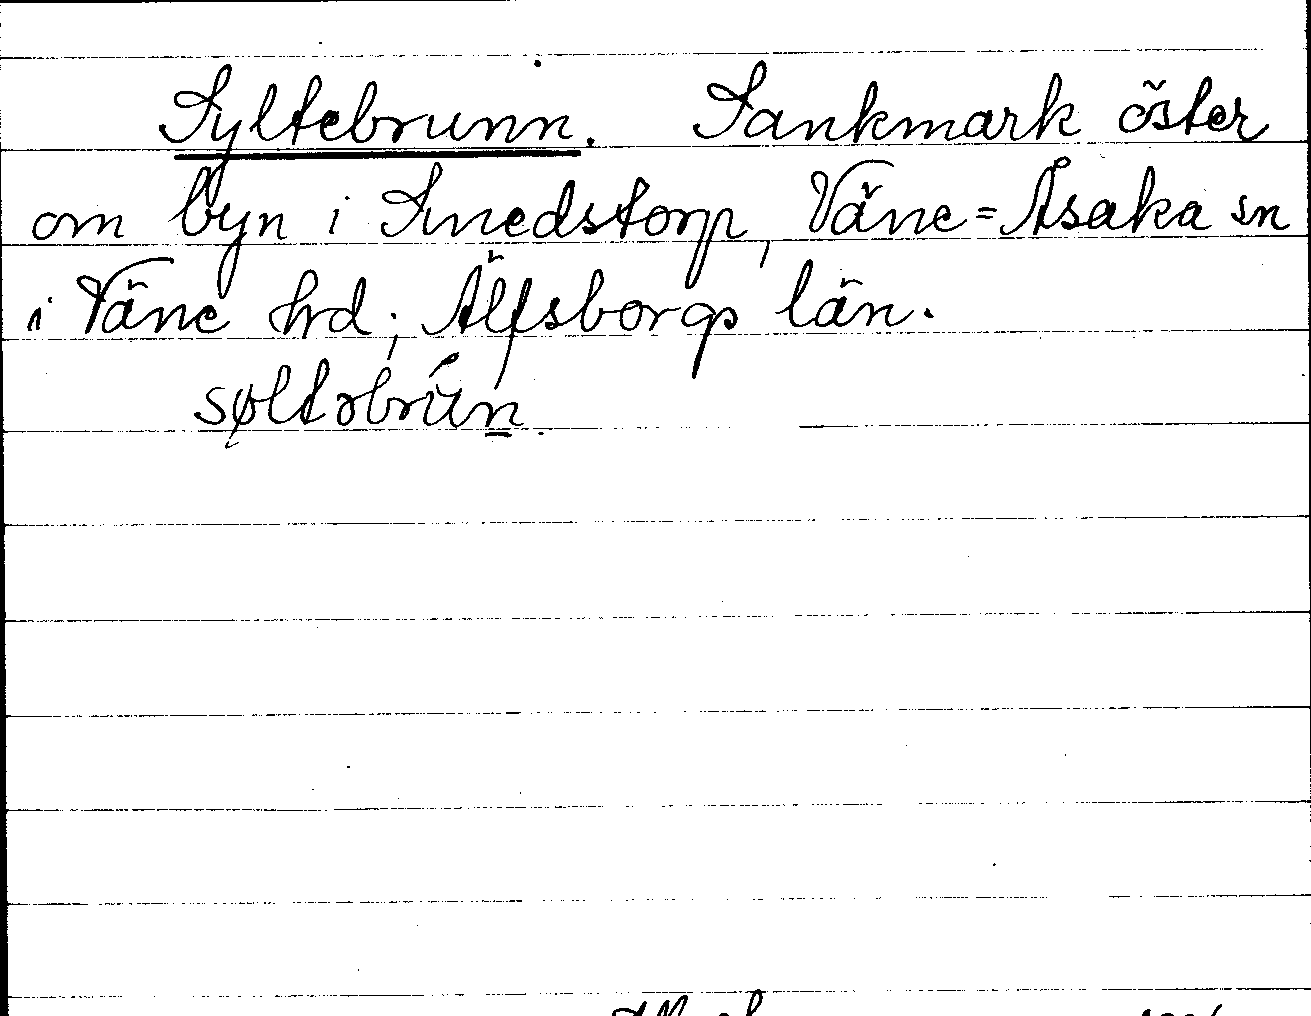 Syltebrunn. Sankmark öster
om byn i Smedstorp, Väne=Åsaka sn
i Väne hrd; Älfsborgs län.